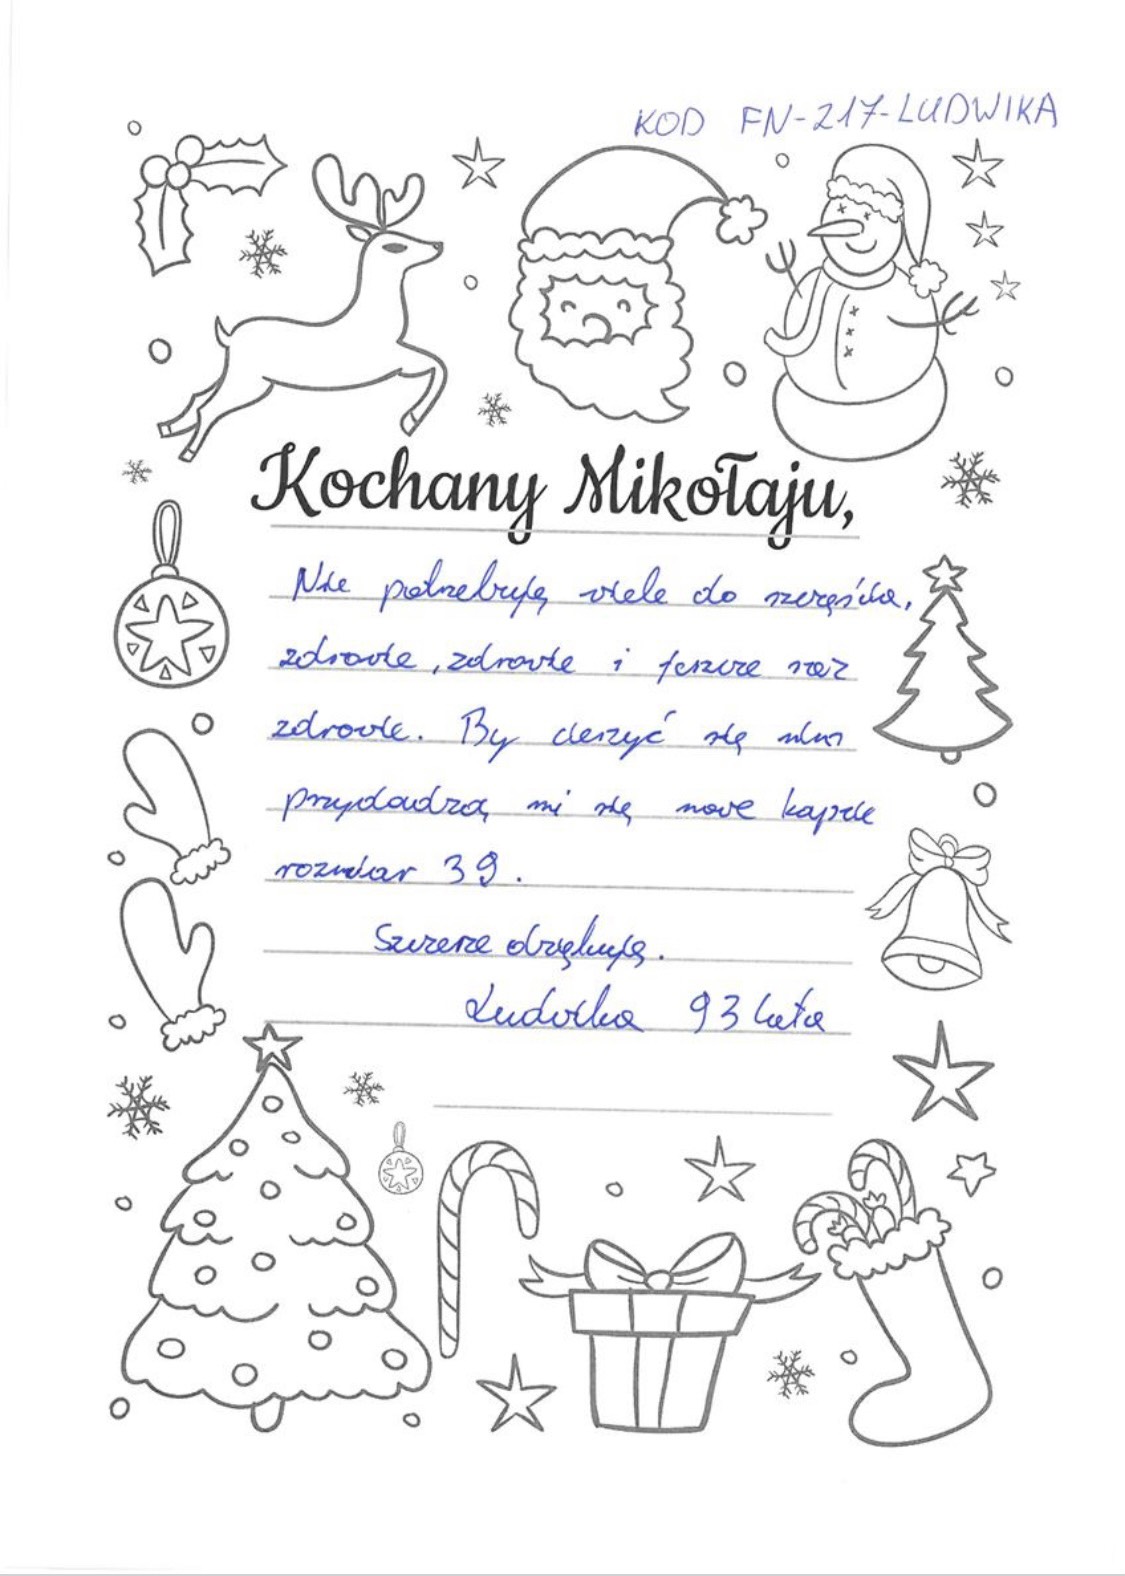 KOD FN-217-LUDWIKA
Kochany Mikołaju,
Nie potrzebuję wiele do szczęścia,
zdrowie, zdrowie i jeszcze raz
zdrowie. By cieszyć się nim
przydadzą mi się nowe kapcie
rozmiar 39.
Szczerze dziękuję.
Ludwika 93 lata